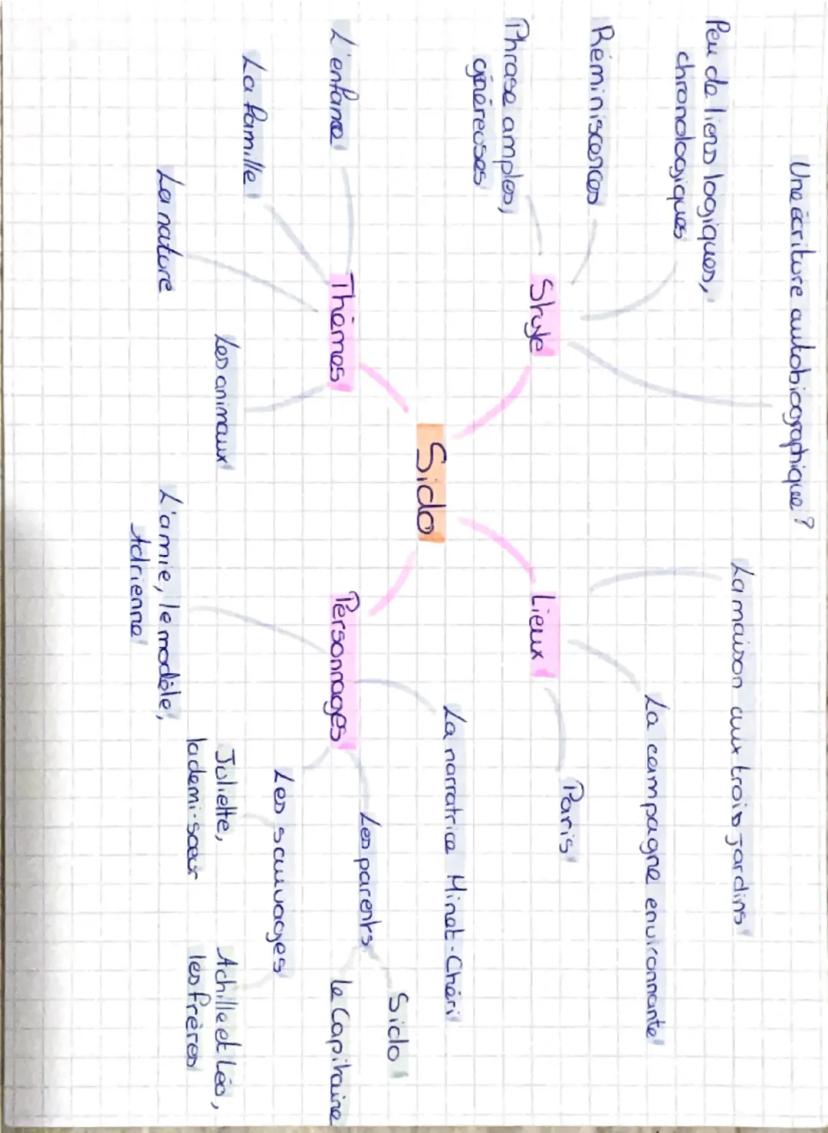 Une écriture autobiographique ?
Peu de liens logiques,
chronologiques
Réminiscences
Phrase amples,
généreuses
Style
La maison aux trois jardins
La campagne environnante
Paris
Lieux
Sido
Thèmes
L'enfance
La famille
La nature
Les animaux
Personnages
La narratrice Minet-Chéri
Les parents
Sido
le Capitaine
Les sauvages
Juliette,
la demi-sœur
Achille et Léo,
les frères
L'amie, le modèle,
Adrienne